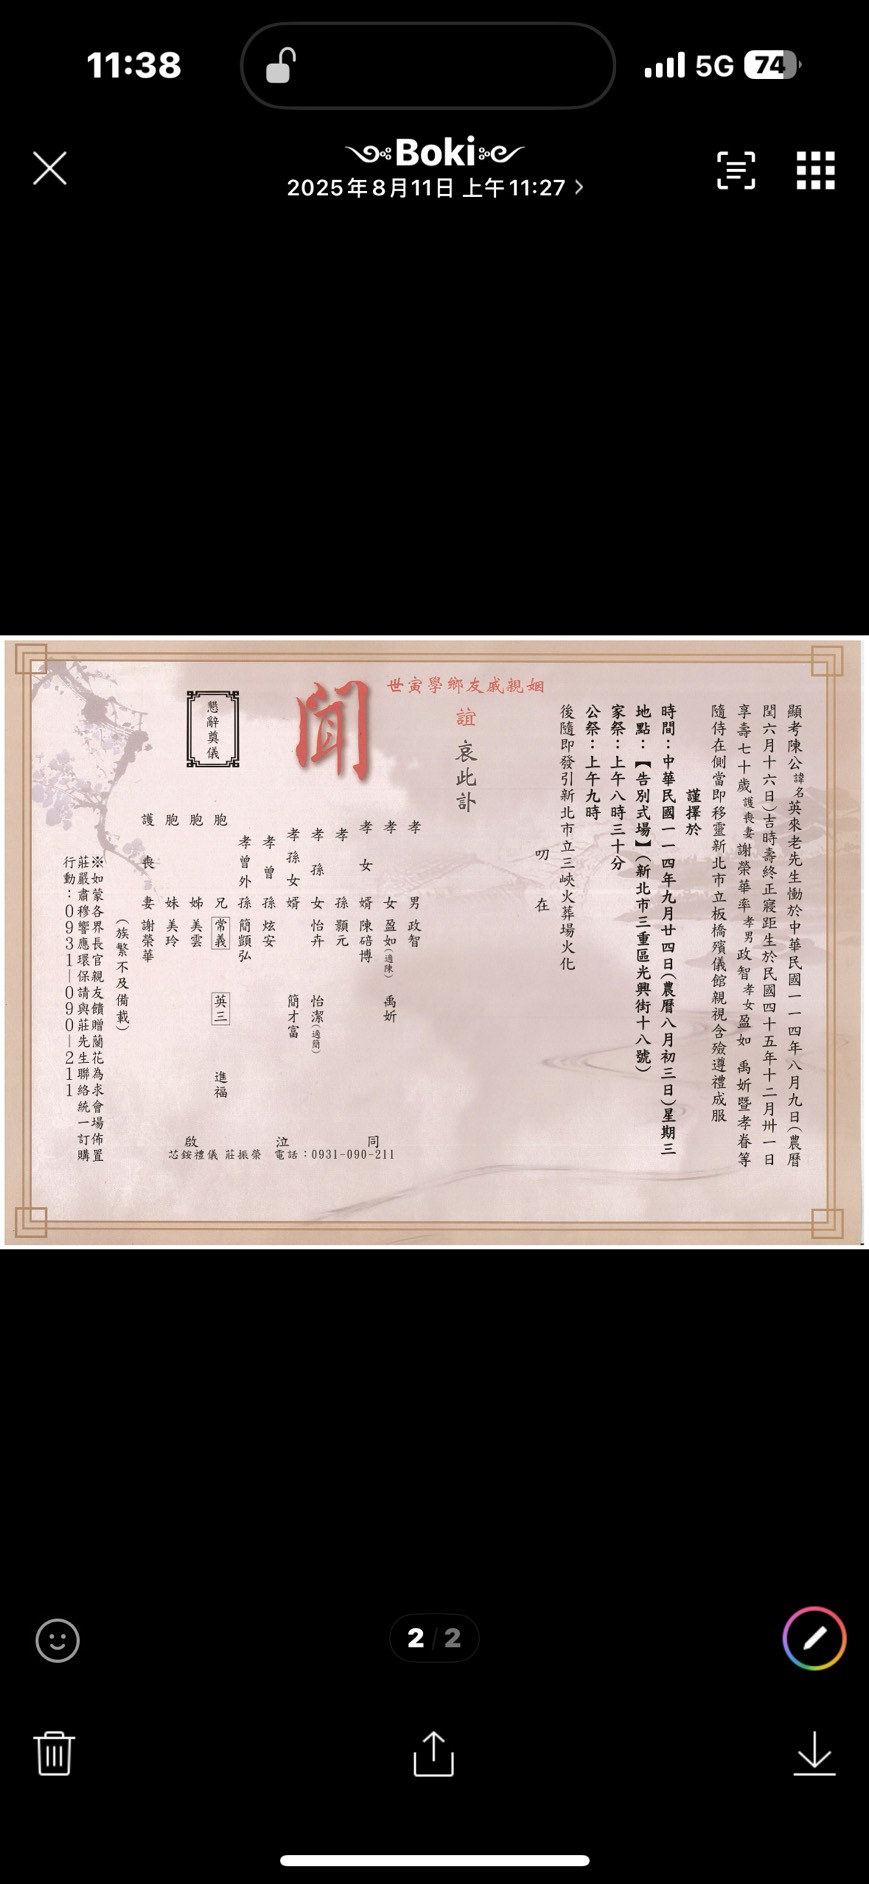 11:38
5G 74
Boki
2025年8月11日 上午11:27
顯考陳公諱名英來老先生慟於中華民國一一四年八月九日(農曆
閏六月十六日)吉時壽終正寢距生於民國四十五年十二月卅一日
享壽七十歲護喪妻謝榮華率孝男政智孝女盈如 禹妡暨孝眷等
隨侍在側當即移靈新北市立板橋殯儀館親視含殮遵禮成服
謹擇於
時間：中華民國一一四年九月廿四日(農曆八月初三日)星期三
地點：【告別式場】(新北市三重區光興街十八號)
家祭：上午八時三十分
公祭：上午九時
後隨即發引新北市立三峽火葬場火化
叨 在
姻親戚友鄉學寅世
誼 哀此訃
聞
孝 男 政智
孝 女 盈如(適陳) 禹妡
孝 女 婿 陳碚博
孝 孫 顥元
孝 孫 女 怡卉 怡潔(適簡)
孝 孫 女 婿 簡才富
孝 曾 孫 炫安
孝 曾 外 孫 簡顗弘
胞 兄 常義 英三 進福
胞 姊 美雲
胞 妹 美玲
護 喪 妻 謝榮華
同 泣 啟
懇辭奠儀
(族繁不及備載)
※如蒙各界長官親友饋贈蘭花為求會場佈置
莊嚴肅穆響應環保請與莊先生聯絡統一訂購
行動：0931—090—211
芯銨禮儀 莊振榮 電話：0931-090-211
2 / 2